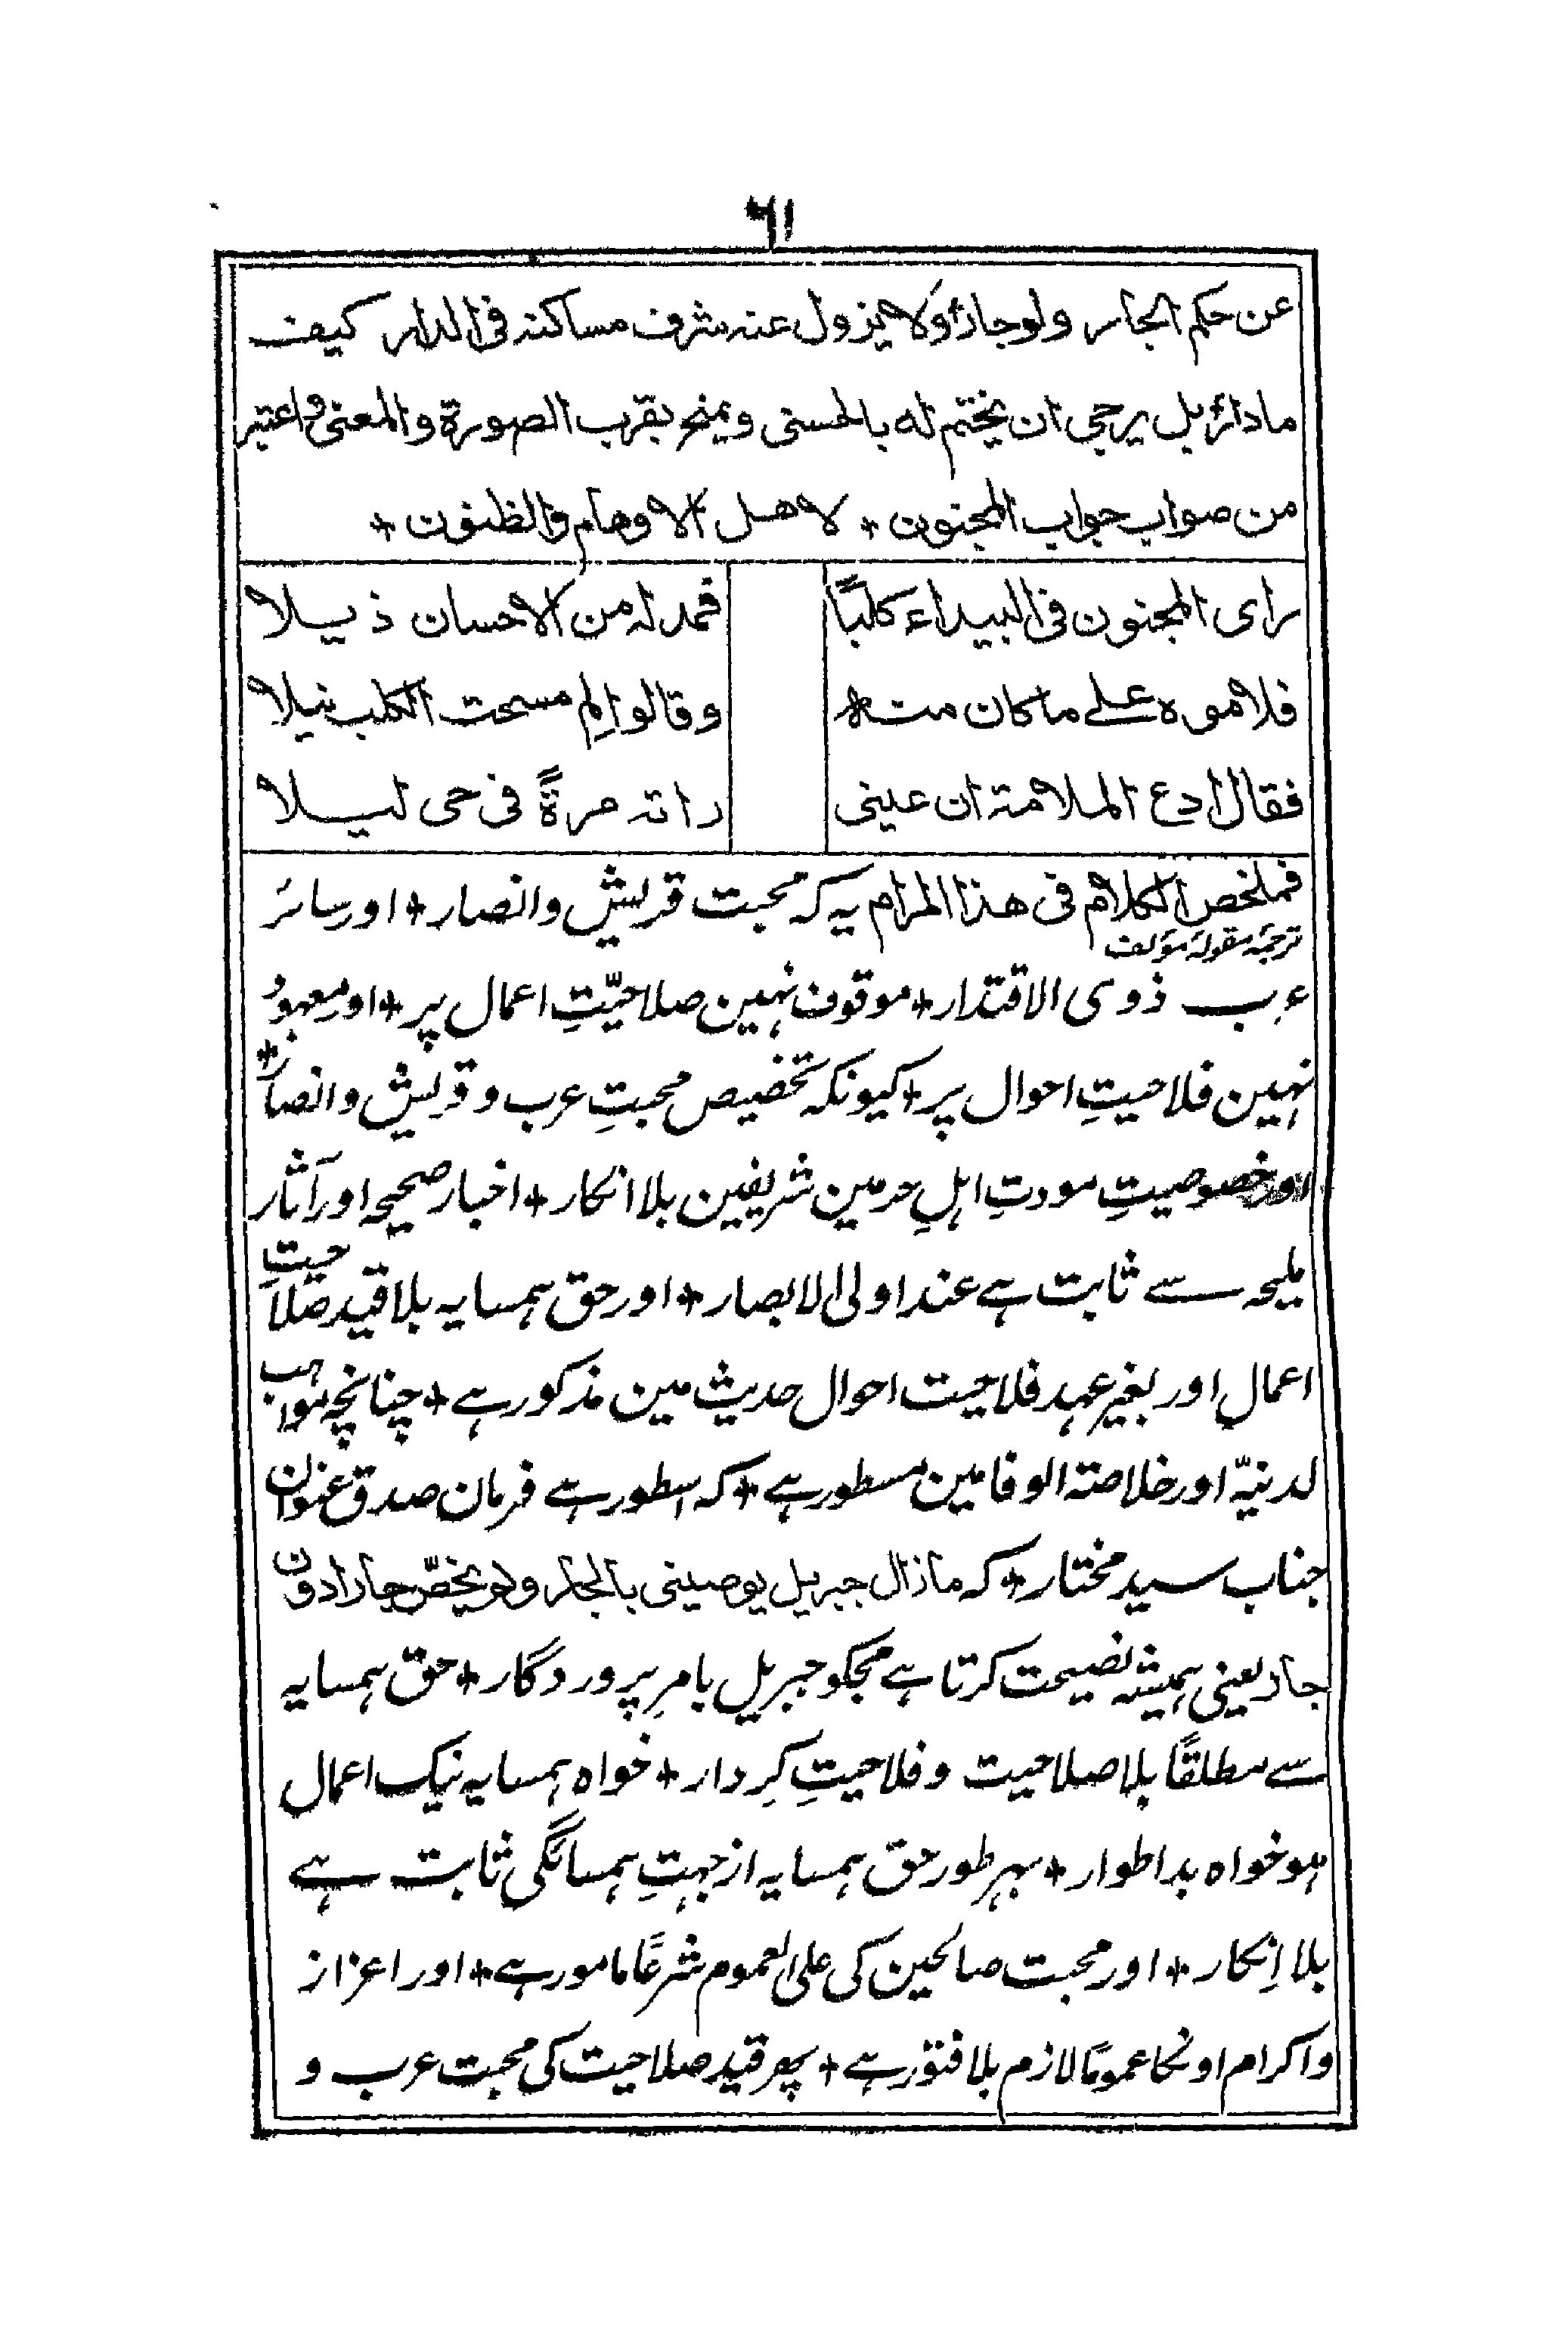 ٦١
عن حکم الجار ولو جار ولا یزول عنه شرف مساکنه فی الدار کیف
ما دار بل یرجی ان یختم له بالحسنی ویمنح بقرب الصورة والمعنی واعتبر
من صواب جواب المجنون ٭ لاهل الاوهام والظنون ٭
رای المجنون فی البیداء کلبًا فمد له من الاحسان ذیلا
فلاموه علی ما کان منه وقالوا لِم مسحت الکلب نیلا
فقال ادع الملامته ان عینی راته مرةً فی حی لیلا
فملخص الکلام فی هذا المرام یہ کہ محبت قریش وانصار ٭ اور سائر
ترجمۂ مقولۂ مؤلف
عرب ذوی الاقتدار ٭ موقوف نہین صلاحیّتِ اعمال پر ٭ اور معہود
نہین فلاحیتِ احوال پر ٭ کیونکہ تخصیص محبتِ عرب و قریش وانصار ٭
اور خصوصیتِ مودتِ اہلِ حرمین شریفین بلا انکار ٭ اخبار صحیحہ اور آثار
ملیحہ سے ثابت ہے عند اولی الابصار ٭ اور حق ہمسایہ بلا قید صلاحیتِ
اعمال اور بغیر عہد فلاحیت احوال حدیث مین مذکور ہے ٭ چنانچہ مواہب
لدنیّہ اور خلاصتہ الوفا مین مسطور ہے ٭ کہ اسطور ہے فرمان صدق عنوان
جناب سید مختار ٭ کہ مازال جبریل یوصینی بالجار ولم یخصّ جارا دون
جار یعنی ہمیشہ نصیحت کرتا ہے مجکو جبریل بامرِ پروردگار ٭ حق ہمسایہ
سے مطلقًا بلا صلاحیت و فلاحیتِ کِردار ٭ خواہ ہمسایہ نیک اعمال
ہو خواہ بد اطوار ٭ بہر طور حق ہمسایہ از جہتِ ہمسائگی ثابت ہے
بلا اِنکار ٭ اور محبت صالحین کی علی العموم شرعًا مامور ہے ٭ اور اعزاز
واکرام اونکا عمومًا لازم بلا فتور ہے ٭ پھر قید صلاحیت کی محبت عرب و